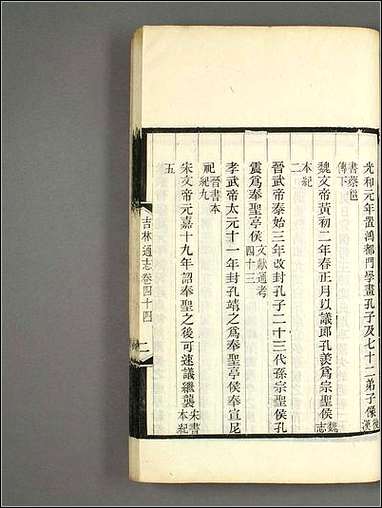 光和元年置鴻都門學畫孔子及七十二弟子像後漢
書蔡邕
傳下
魏文帝黃初二年春正月以議郎孔羨爲宗聖侯魏志
本紀
二
晉武帝泰始三年改封孔子二十三代孫宗聖侯孔
震爲奉聖亭侯文獻通考
四十三
孝武帝太元十一年封孔靖之爲奉聖亭侯奉宣尼
祀晉書本
紀九
宋文帝元嘉十九年詔奉聖之後可速議繼襲宋書
本紀
五
吉林通志卷四十四
二